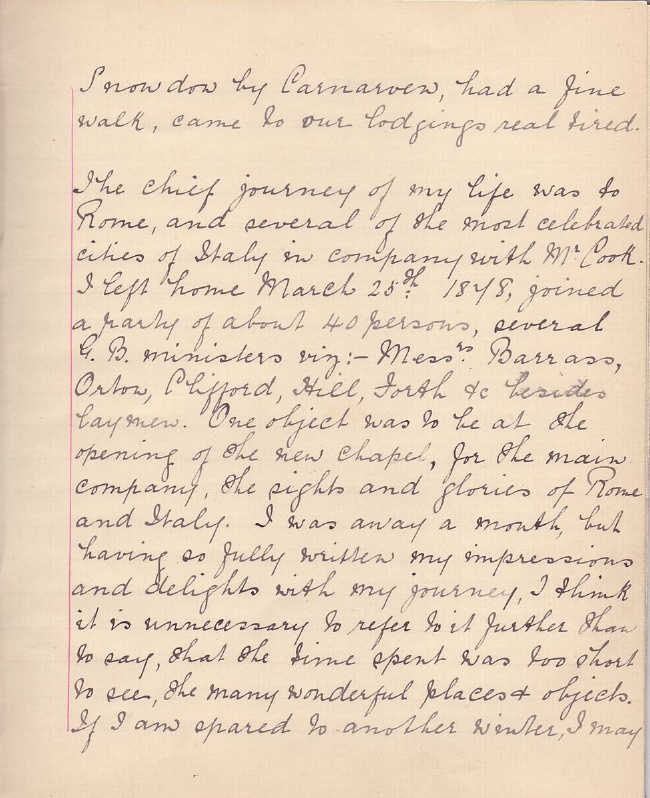 Snowdon by Carnarven, had a fine
walk, came to our lodgings real tired.
The chief journey of my life was to
Rome, and several of the most celebrated
cities of Italy in company with Mr. Cook.
I left home March 25th. 1878, joined
a party of about 40 persons, several
G. B. ministers viz:- Messrs. Barrass,
Orton, Clifford, Hill, Forth &c besides
laymen. One object was to be at the
opening of the new chapel, for the main
company, the sights and glories of Rome
and Italy. I was away a month, but
having so fully written my impressions
and delights with my journey, I think
it is unnecessary to refer to it further than
to say, that the time spent was too short
to see, the many wonderful places & objects.
If I am spared to another winter, I may